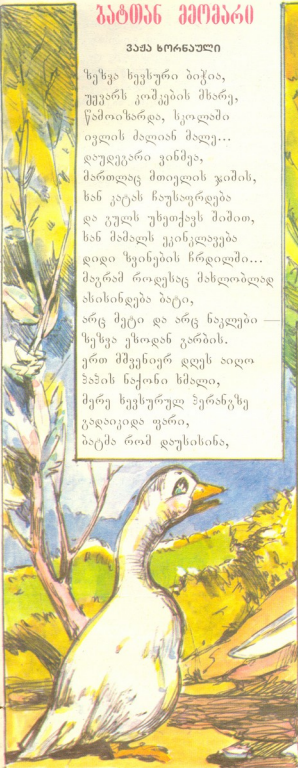 ბატთან მეომარი
ვაჟა ხორნაული
ზეზვა ხევსური ბიჭია,
უყვარს კოშკების მხარე,
წამოიზარდა, სკოლაში
ივლის ძალიან მალე...
დაუდეგარი ვინმეა,
მართლაც მთიელის ჯიშის,
ხან კატას ჩაუსაფრდება
და გულს უხეთქავს შიშით,
ხან მამალს ეკინკლავება
დიდი ზვინების ჩრდილში...
მაგრამ როდესაც მახლობლად
ასისინდება ბატი,
არც მეტი და არც ნაკლები —
ზეზვა ეზოდან გარბის.
ერთ მშვენიერ დღეს აიღო
პაპის ნაქონი ხმალი,
მერე ხევსურულ პერანგზე
გადაიკიდა ფარი,
ბატმა რომ დაუსისინა,